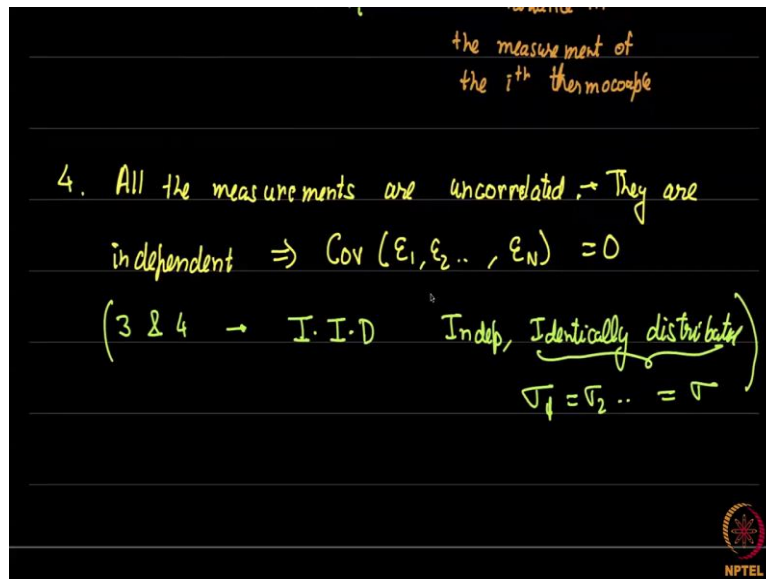 the measurement of
the ith thermocouple
4. All the measurements are uncorrelated. → They are
independent ⇒ Cov (ε1, ε2 .. , εN) = 0
(3 & 4 → I. I. D Indep, Identically distributed)
σ1 = σ2 .. = σ
NPTEL